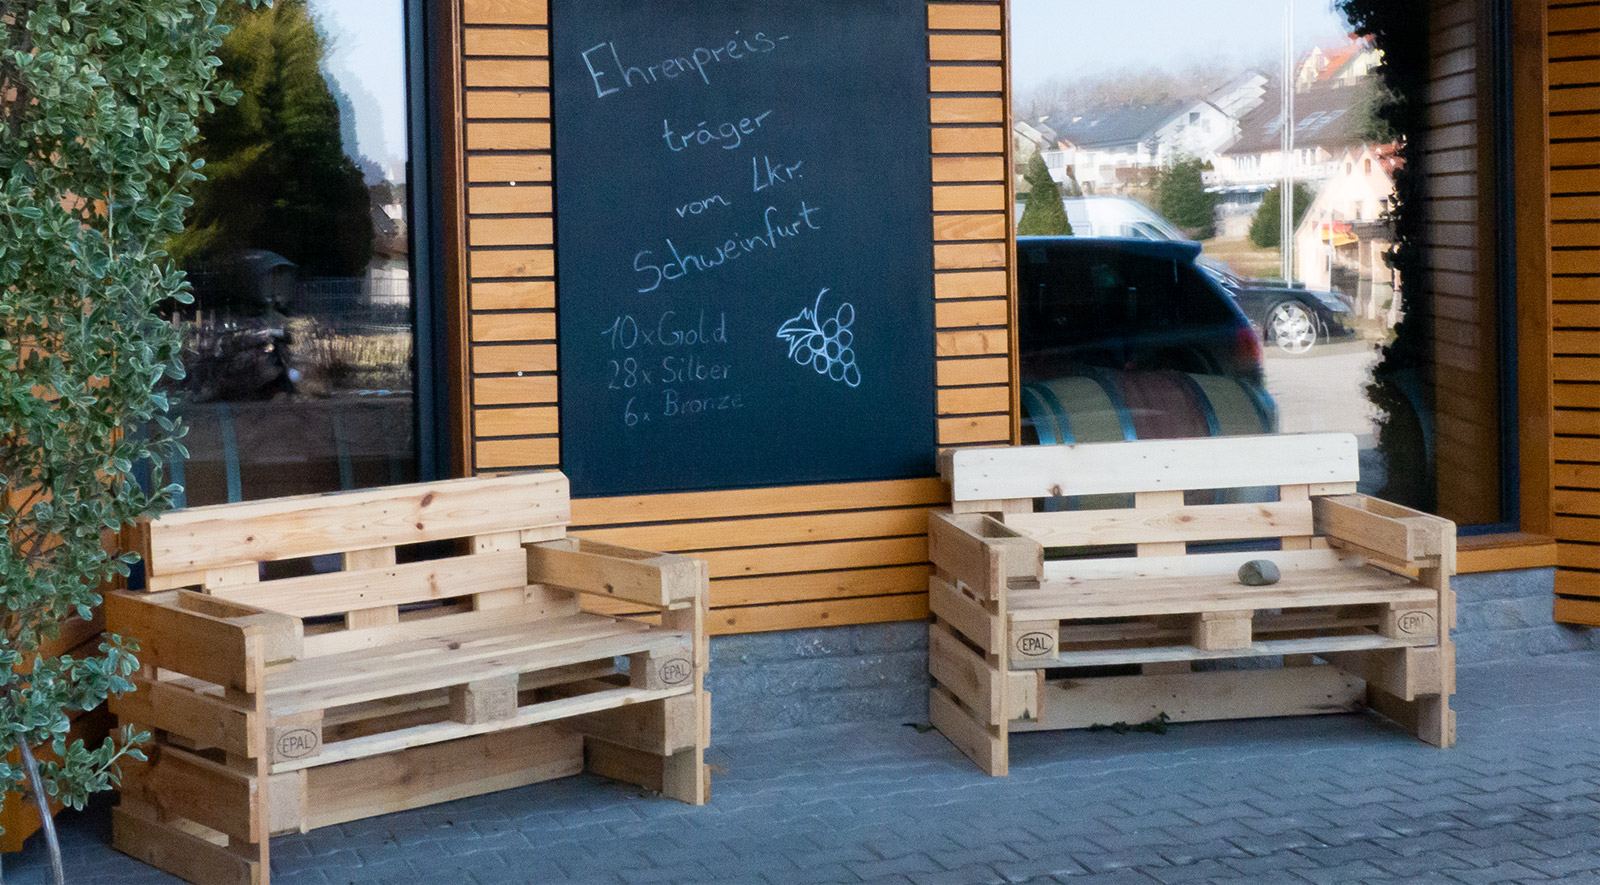 Ehrenpreis-
träger
vom Lkr.
Schweinfurt
10x Gold
28x Silber
6x Bronze
EPAL
EPAL
EPAL
EPAL